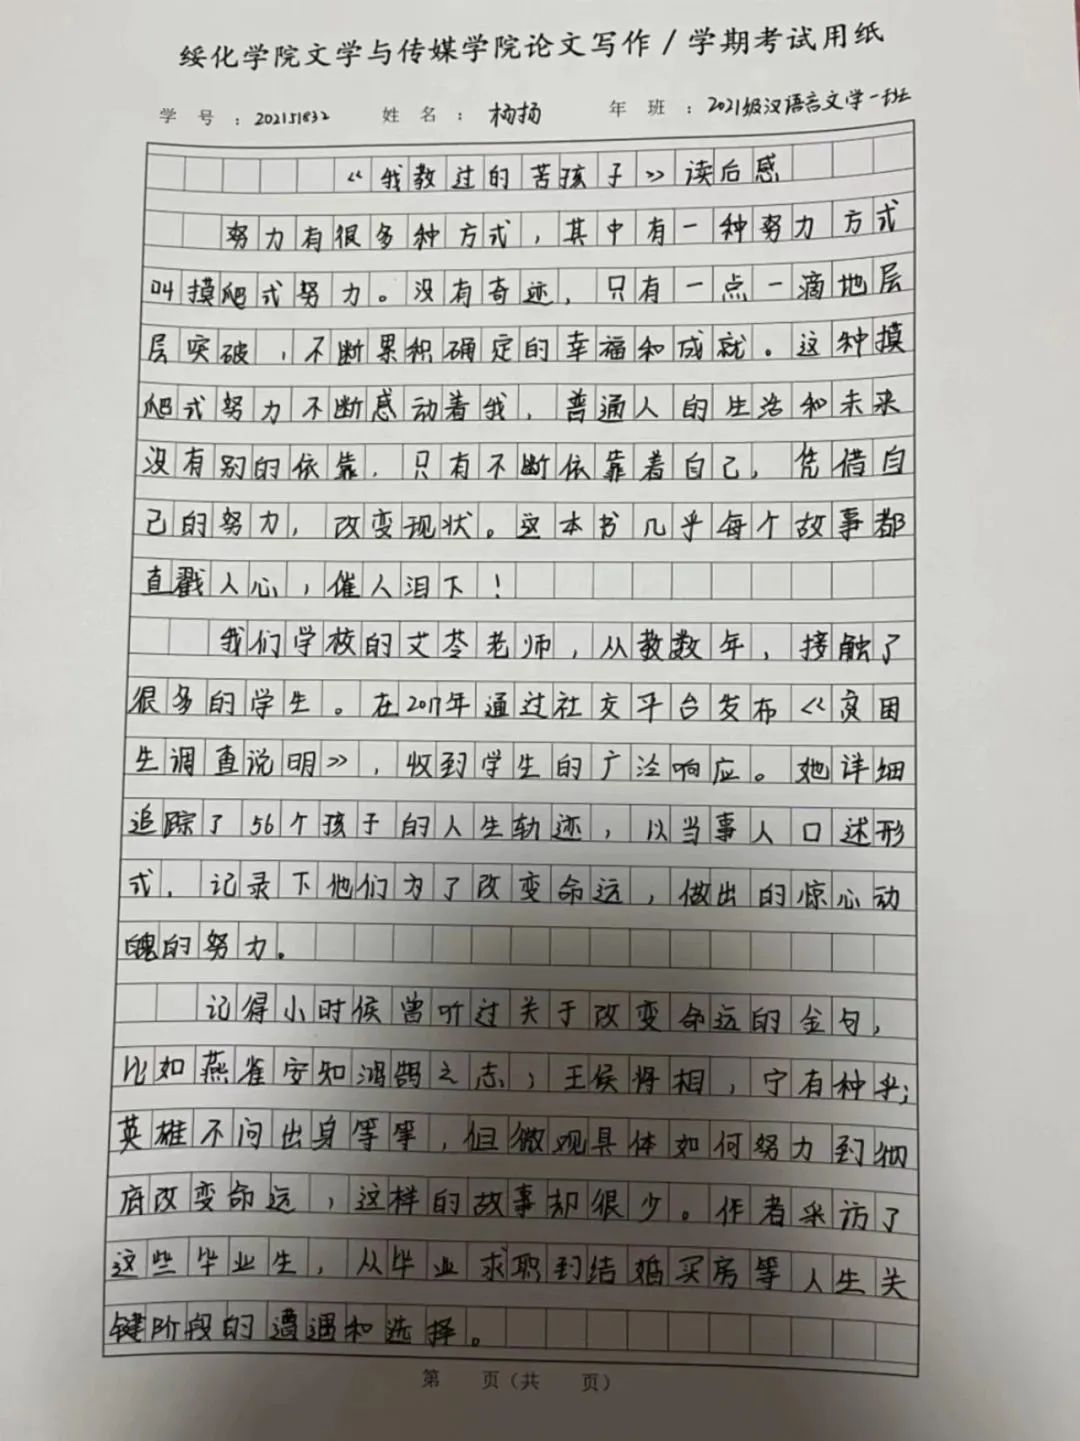 绥化学院文学与传媒学院论文写作/学期考试用纸
学号：202151832 姓名：杨扬 年班：2021级汉语言文学一班
《我教过的苦孩子》读后感
努力有很多种方式，其中有一种努力方式
叫摸爬式努力。没有奇迹，只有一点一滴地层
层突破，不断累积确定的幸福和成就。这种摸
爬式努力不断感动着我，普通人的生活和未来
没有别的依靠，只有不断依靠着自己，凭借自
己的努力，改变现状。这本书几乎每个故事都
直戳人心，催人泪下！
我们学校的艾苓老师，从教数年，接触了
很多的学生。在2017年通过社交平台发布《贫困
生调查说明》，收到学生的广泛响应。她详细
追踪了56个孩子的人生轨迹，以当事人口述形
式，记录下他们为了改变命运，做出的惊心动
魄的努力。
记得小时候曾听过关于改变命运的金句，
比如燕雀安知鸿鹄之志；王侯将相，宁有种乎；
英雄不问出身等等，但微观具体如何努力到彻
底改变命运，这样的故事却很少。作者采访了
这些毕业生，从毕业求职到结婚买房等人生关
键阶段的遭遇和选择。
第 页（共 页）